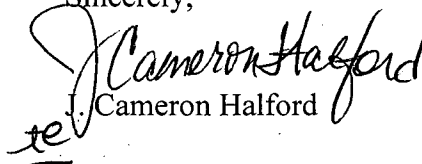 Sincerely,
J Cameron Halford
J. Cameron Halford
te